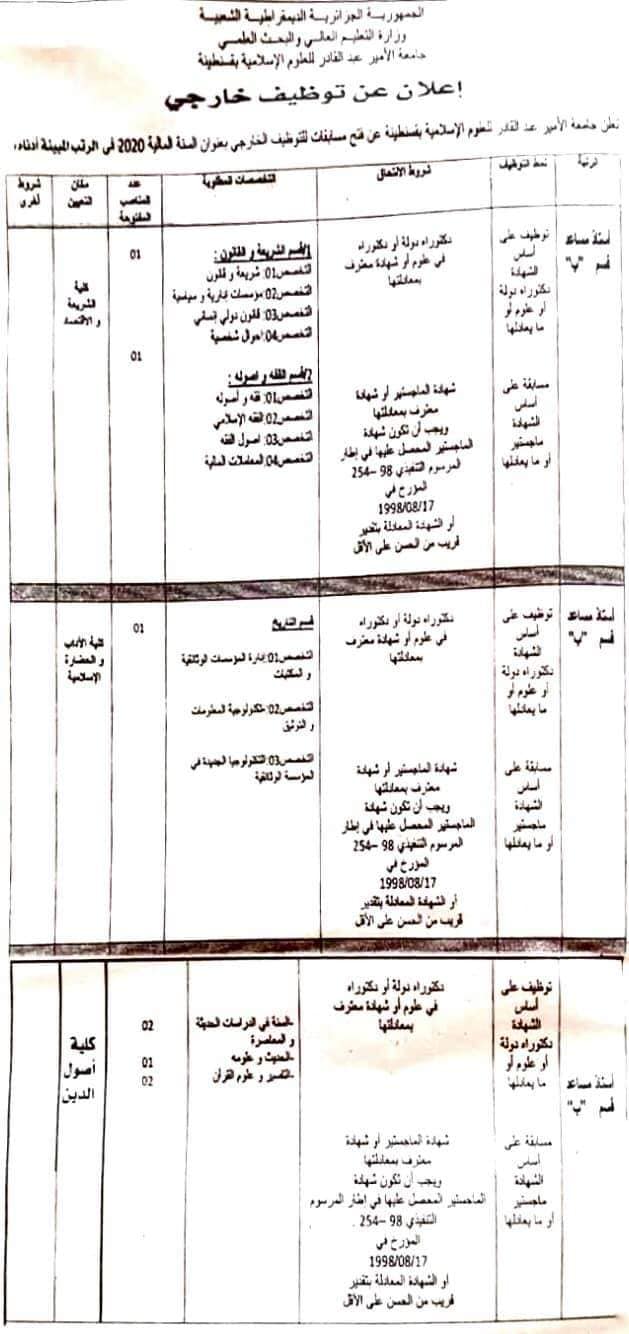 الجمهورية الجزائرية الديمقراطية الشعبية
وزارة التعليم العالي والبحث العلمي
جامعة الأمير عبد القادر للعلوم الإسلامية بقسنطينة
إعلان عن توظيف خارجي
تعلن جامعة الأمير عبد القادر للعلوم الإسلامية بقسنطينة عن فتح مسابقات للتوظيف الخارجي بعنوان السنة المالية 2020 في الرتب المبينة أدناه،
الرتبة
نمط التوظيف
شروط الالتحاق
التخصصات المطلوبة
عدد
المناصب
المفتوحة
مكان
التعيين
شروط
أخرى
أستاذ مساعد
قسم "ب"
توظيف على
أساس
الشهادة
دكتوراه دولة
أو علوم أو
ما يعادلها
دكتوراه دولة أو دكتوراه
في علوم أو شهادة معترف
بمعادلتها
1/قسم الشريعة و القانون :
التخصص01: شريعة و قانون
التخصص02: مؤسسات إدارية و سياسية
التخصص03: قانون دولي إنساني
التخصص04: احوال شخصية
01
كلية
الشريعة
و الاقتصاد
مسابقة على
أساس
الشهادة
ماجستير
أو ما يعادلها
شهادة الماجستير أو شهادة
معترف بمعادلتها
ويجب أن تكون شهادة
الماجستير المحصل عليها في إطار
المرسوم التنفيذي 98 –254
المؤرخ في
1998/08/17
أو الشهادة المعادلة بتقدير
قريب من الحسن على الأقل
2/قسم الفقه و اصوله :
التخصص01: فقه و أصوله
التخصص02: الفقه الإسلامي
التخصص03: اصول الفقه
التخصص04: المعاملات المالية
01
أستاذ مساعد
قسم "ب"
توظيف على
أساس
الشهادة
دكتوراه دولة
أو علوم أو
ما يعادلها
دكتوراه دولة أو دكتوراه
في علوم أو شهادة معترف
بمعادلتها
قسم التاريخ
التخصص01: إدارة المؤسسات الوثائقية
و المكتبات
التخصص02: تكنولوجية المعلومات
و التوثيق
التخصص03: التكنولوجيا الجديدة في
المؤسسة الوثائقية
01
كلية الآداب
و الحضارة
الإسلامية
مسابقة على
أساس
الشهادة
ماجستير
أو ما يعادلها
شهادة الماجستير أو شهادة
معترف بمعادلتها
ويجب أن تكون شهادة
الماجستير المحصل عليها في إطار
المرسوم التنفيذي 98 –254
المؤرخ في
1998/08/17
أو الشهادة المعادلة بتقدير
قريب من الحسن على الأقل
أستاذ مساعد
قسم "ب"
توظيف على
أساس
الشهادة
دكتوراه دولة
أو علوم أو
ما يعادلها
دكتوراه دولة أو دكتوراه
في علوم أو شهادة معترف
بمعادلتها
-السنة في الدراسات الحديثة
و المعاصرة
-الحديث و علومه
-التفسير و علوم القرآن
02
01
02
كلية
أصول
الدين
مسابقة على
أساس
الشهادة
ماجستير
أو ما يعادلها
شهادة الماجستير أو شهادة
معترف بمعادلتها
ويجب أن تكون شهادة
الماجستير المحصل عليها في إطار المرسوم
التنفيذي 98 –254
المؤرخ في
1998/08/17
أو الشهادة المعادلة بتقدير
قريب من الحسن على الأقل